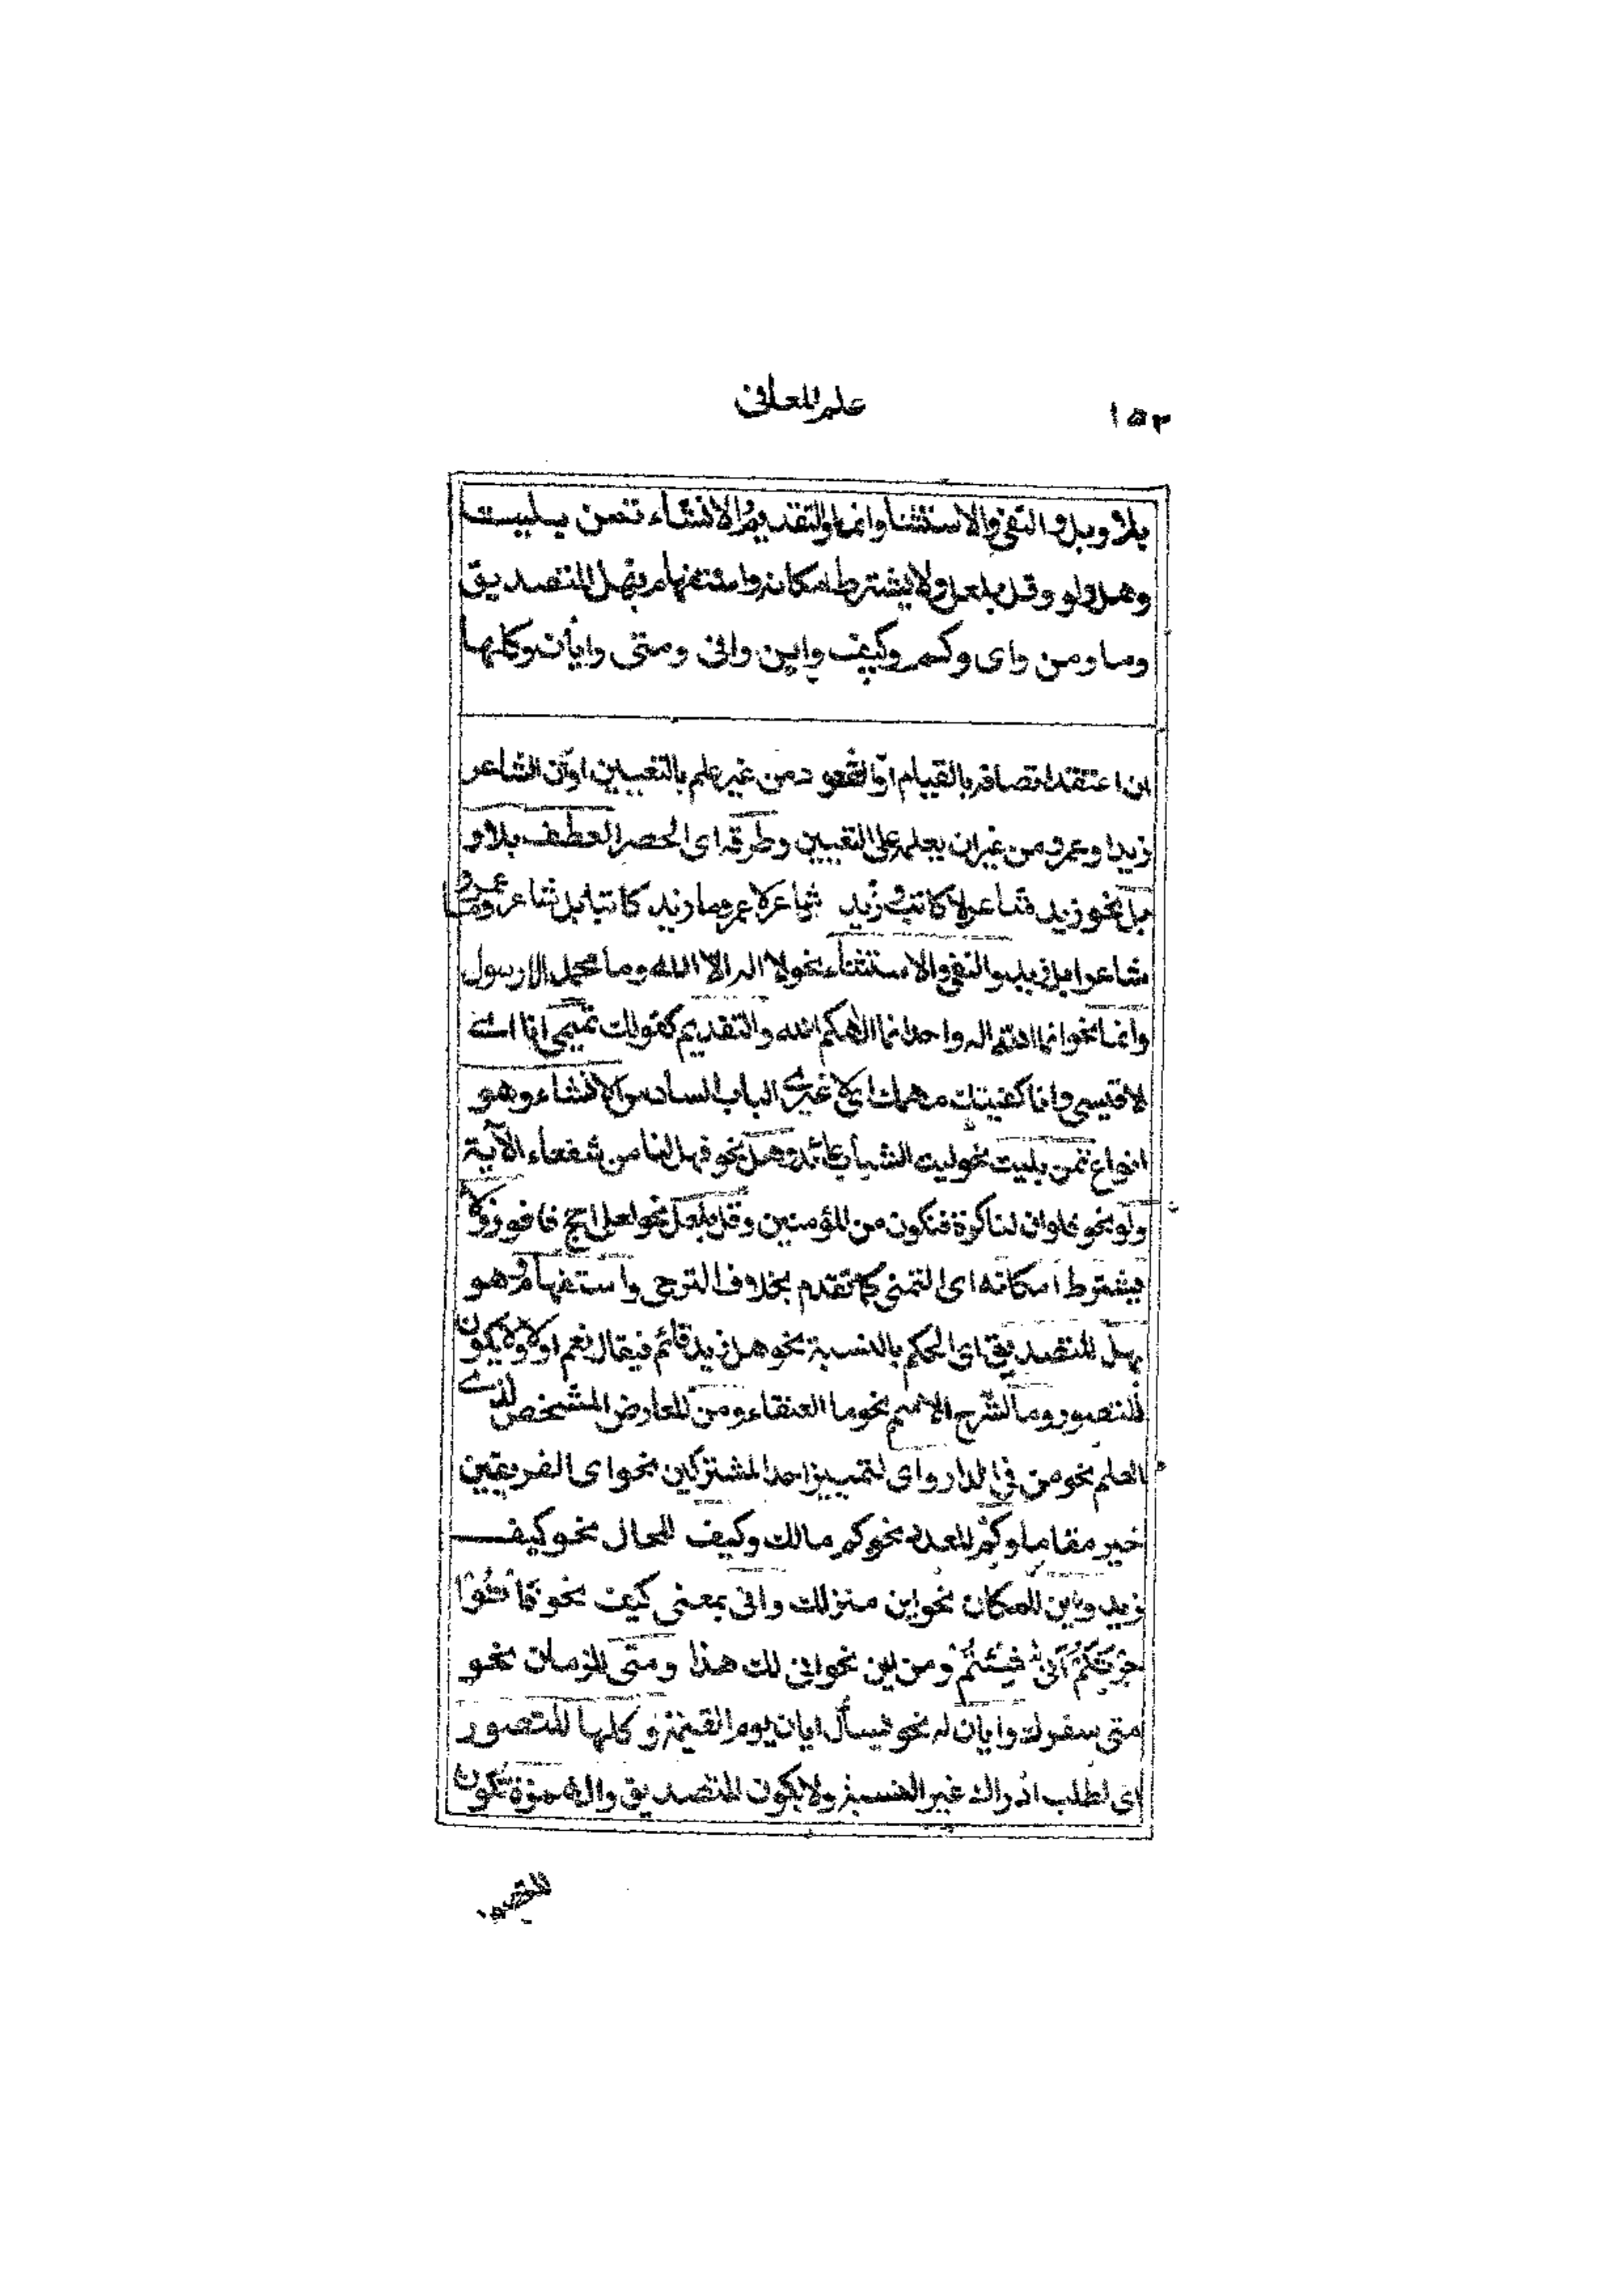 ١٥٢
علم المعاني
بلا وبل والنفي والاستثناء وانما والتقديم الانشاء تمن بليت
وهل ولو وقل بلعل ولا يشترط امكانه واستفهام بهل للتصديق
وما ومن واى وكم وكيف واين وانى ومتى وايان وكلها
ان اعتقد اتصافه بالقيام او القعود من غير علم بالتعيين او ان الشاعر
زيد او عمرو من غير ان يعلمه على التعيين وطرقه اى الحصر العطف بلا و
بل نحو زيد شاعر لا كاتب وزيد شاعر لا عمرو ما زيد كاتبا بل شاعر وما عمرو
شاعرا بل زيد والنفي والاستثناء نحو لا اله الا الله وما محمد الا رسول
وانما نحو انما الله اله واحد انما الهكم الله والتقديم كقولك تميمي انا اى
لا قيسي وانا كفيتك مهمك اى لا غيرى الباب السادس الانشاء وهو
انواع تمن بليت نحو ليت الشباب عائد وهل نحو فهل لنا من شفعاء الآية
ولو نحو فلو ان لنا كرة فنكون من المؤمنين وقل بلعل نحو لعلى احج فافوز ولا
يشترط امكانه اى التمنى كما تقدم بخلاف الترجى واستفهام وهو
بهل للتصديق اى الحكم بالنسبة نحو هل زيد قائم فيقال نعم او لا ولا يكون
للتصور وما لشرح الاسم نحو ما العنقاء ومن للعارض المشخص لذى
العلم نحو من في الدار واى لتمييز احد المشتركين نحو اى الفريقين
خير مقاما وكم للعدد نحو كم مالك وكيف للحال نحو كيف
زيد واين للمكان نحو اين منزلك وانى بمعنى كيف نحو فَأْتُوْا
حَرْثَكُمْ اَنّٰى شِئْتُمْ ومن اين نحو انى لك هذا ومتى للزمان نحو
متى سفرك وايان له نحو يسأل ايان يوم القيمة وكلها للتصور
اى لطلب ادراك غير النسبة ولا يكون للتصديق والهمزة تكون
للتصور